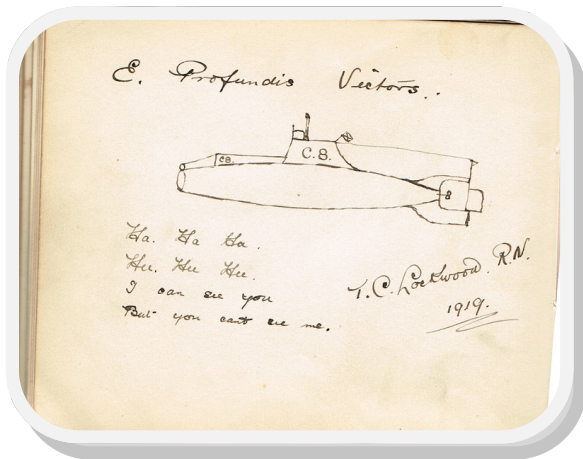 E. Profundis Victors..
C.8.
C8.
8
Ha. Ha Ha.
Hu. Hu Hu.
I can see you
But you cant see me.
T. C. Lockwood. R.N.
1919.